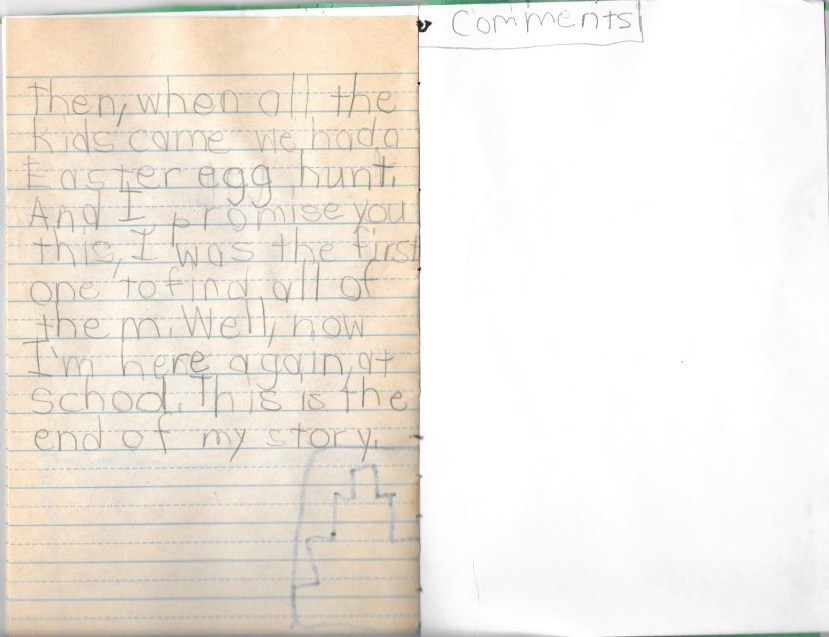 Then, when all the
kids came we had a
Easter egg hunt.
And I promise you
this, I was the first
one to find all of
them. Well, now
I'm here again, at
School. This is the
end of my story.
Comments